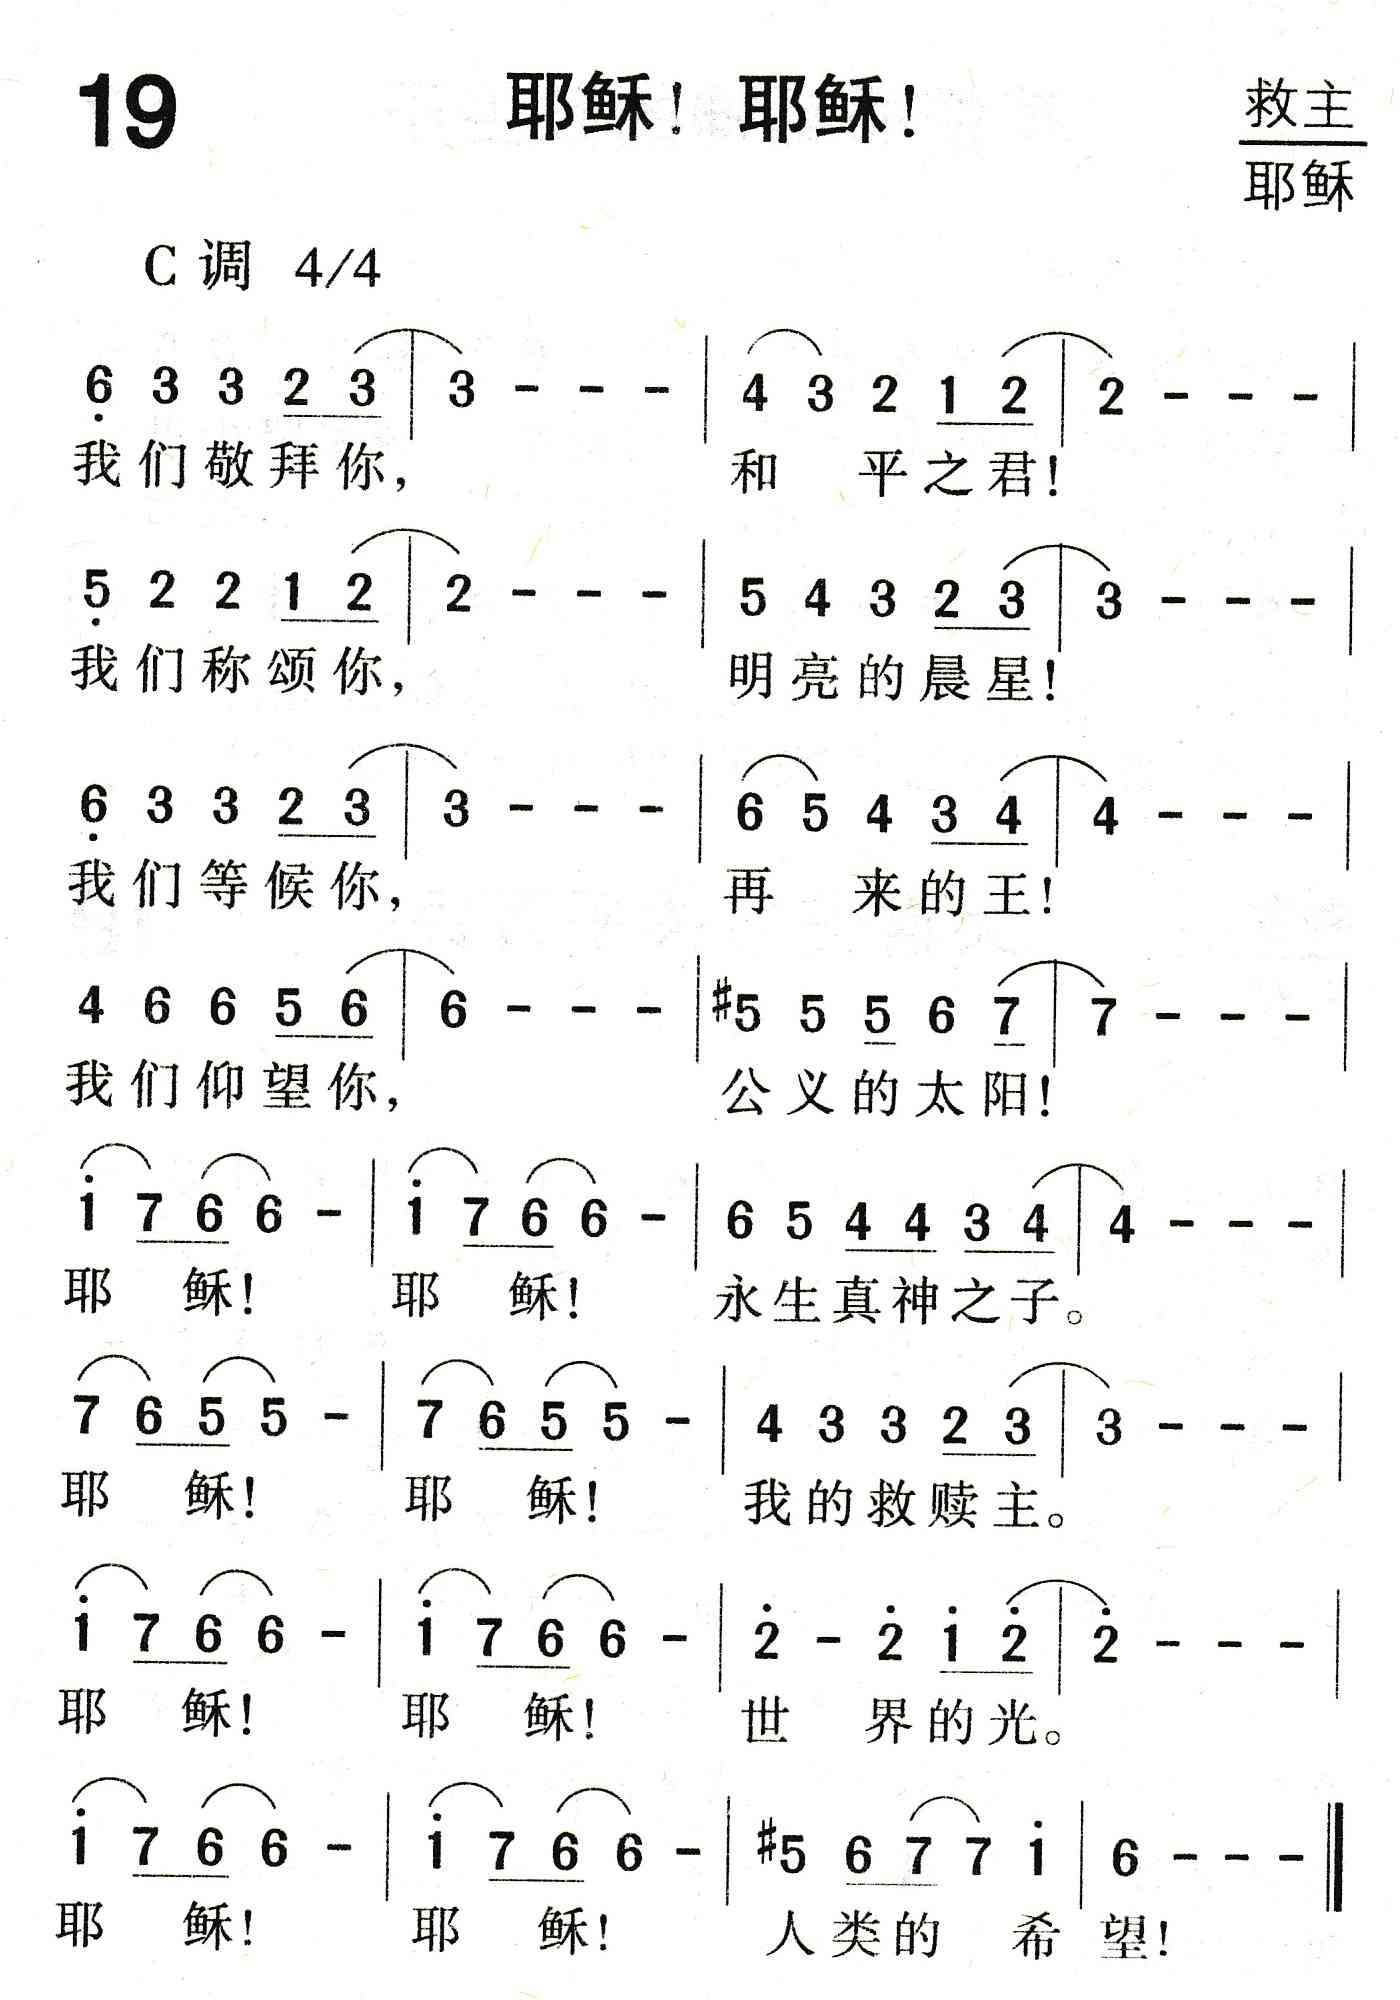 19 耶稣！耶稣！ 救主
耶稣
C调 4/4
6̣ 3 3 2 3 | 3 - - - | 4 3 2 1 2 | 2 - - - |
我们敬拜你， 和 平之君！
5̣ 2 2 1 2 | 2 - - - | 5 4 3 2 3 | 3 - - - |
我们称颂你， 明亮的晨星！
6̣ 3 3 2 3 | 3 - - - | 6 5 4 3 4 | 4 - - - |
我们等候你， 再 来的王！
4 6 6 5 6 | 6 - - - | #5 5 5 6 7 | 7 - - - |
我们仰望你， 公义的太阳！
1̇ 7 6 6 - | 1̇ 7 6 6 - | 6 5 4 4 3 4 | 4 - - - |
耶 稣！ 耶 稣！ 永生真神之子。
7 6 5 5 - | 7 6 5 5 - | 4 3 3 2 3 | 3 - - - |
耶 稣！ 耶 稣！ 我的救赎主。
1̇ 7 6 6 - | 1̇ 7 6 6 - | 2̇ - 2̇ 1̇ 2̇ | 2̇ - - - |
耶 稣！ 耶 稣！ 世 界的光。
1̇ 7 6 6 - | 1̇ 7 6 6 - | #5 6 7 7 1̇ | 6 - - - ‖
耶 稣！ 耶 稣！ 人类的 希望！